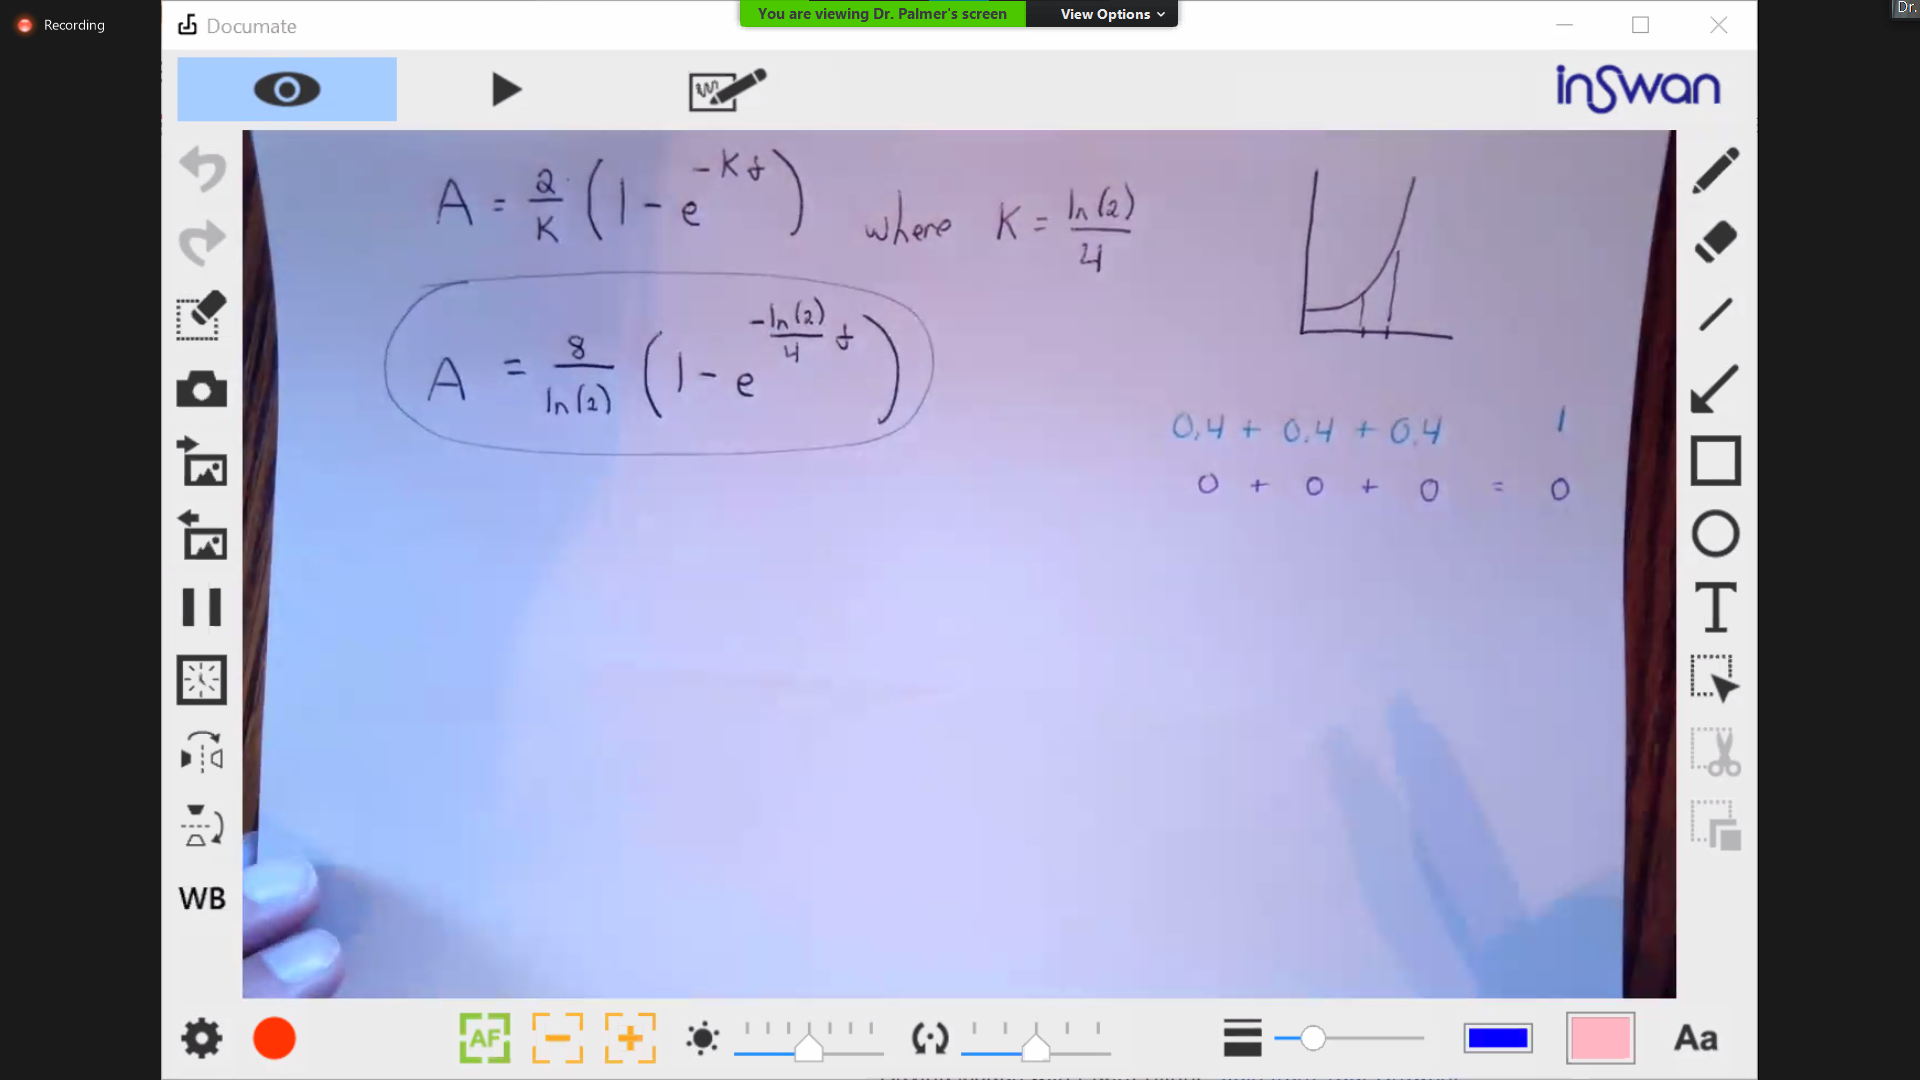 Recording
You are viewing Dr. Palmer's screen
View Options
Dr.
Documate
inSwan
A = 2/K (1 - e^{-Kt}) where K = ln(2)/4
A = 8/ln(2) (1 - e^{-ln(2)/4 t})
0.4 + 0.4 + 0.4 1
0 + 0 + 0 = 0
T
WB
AF
Aa